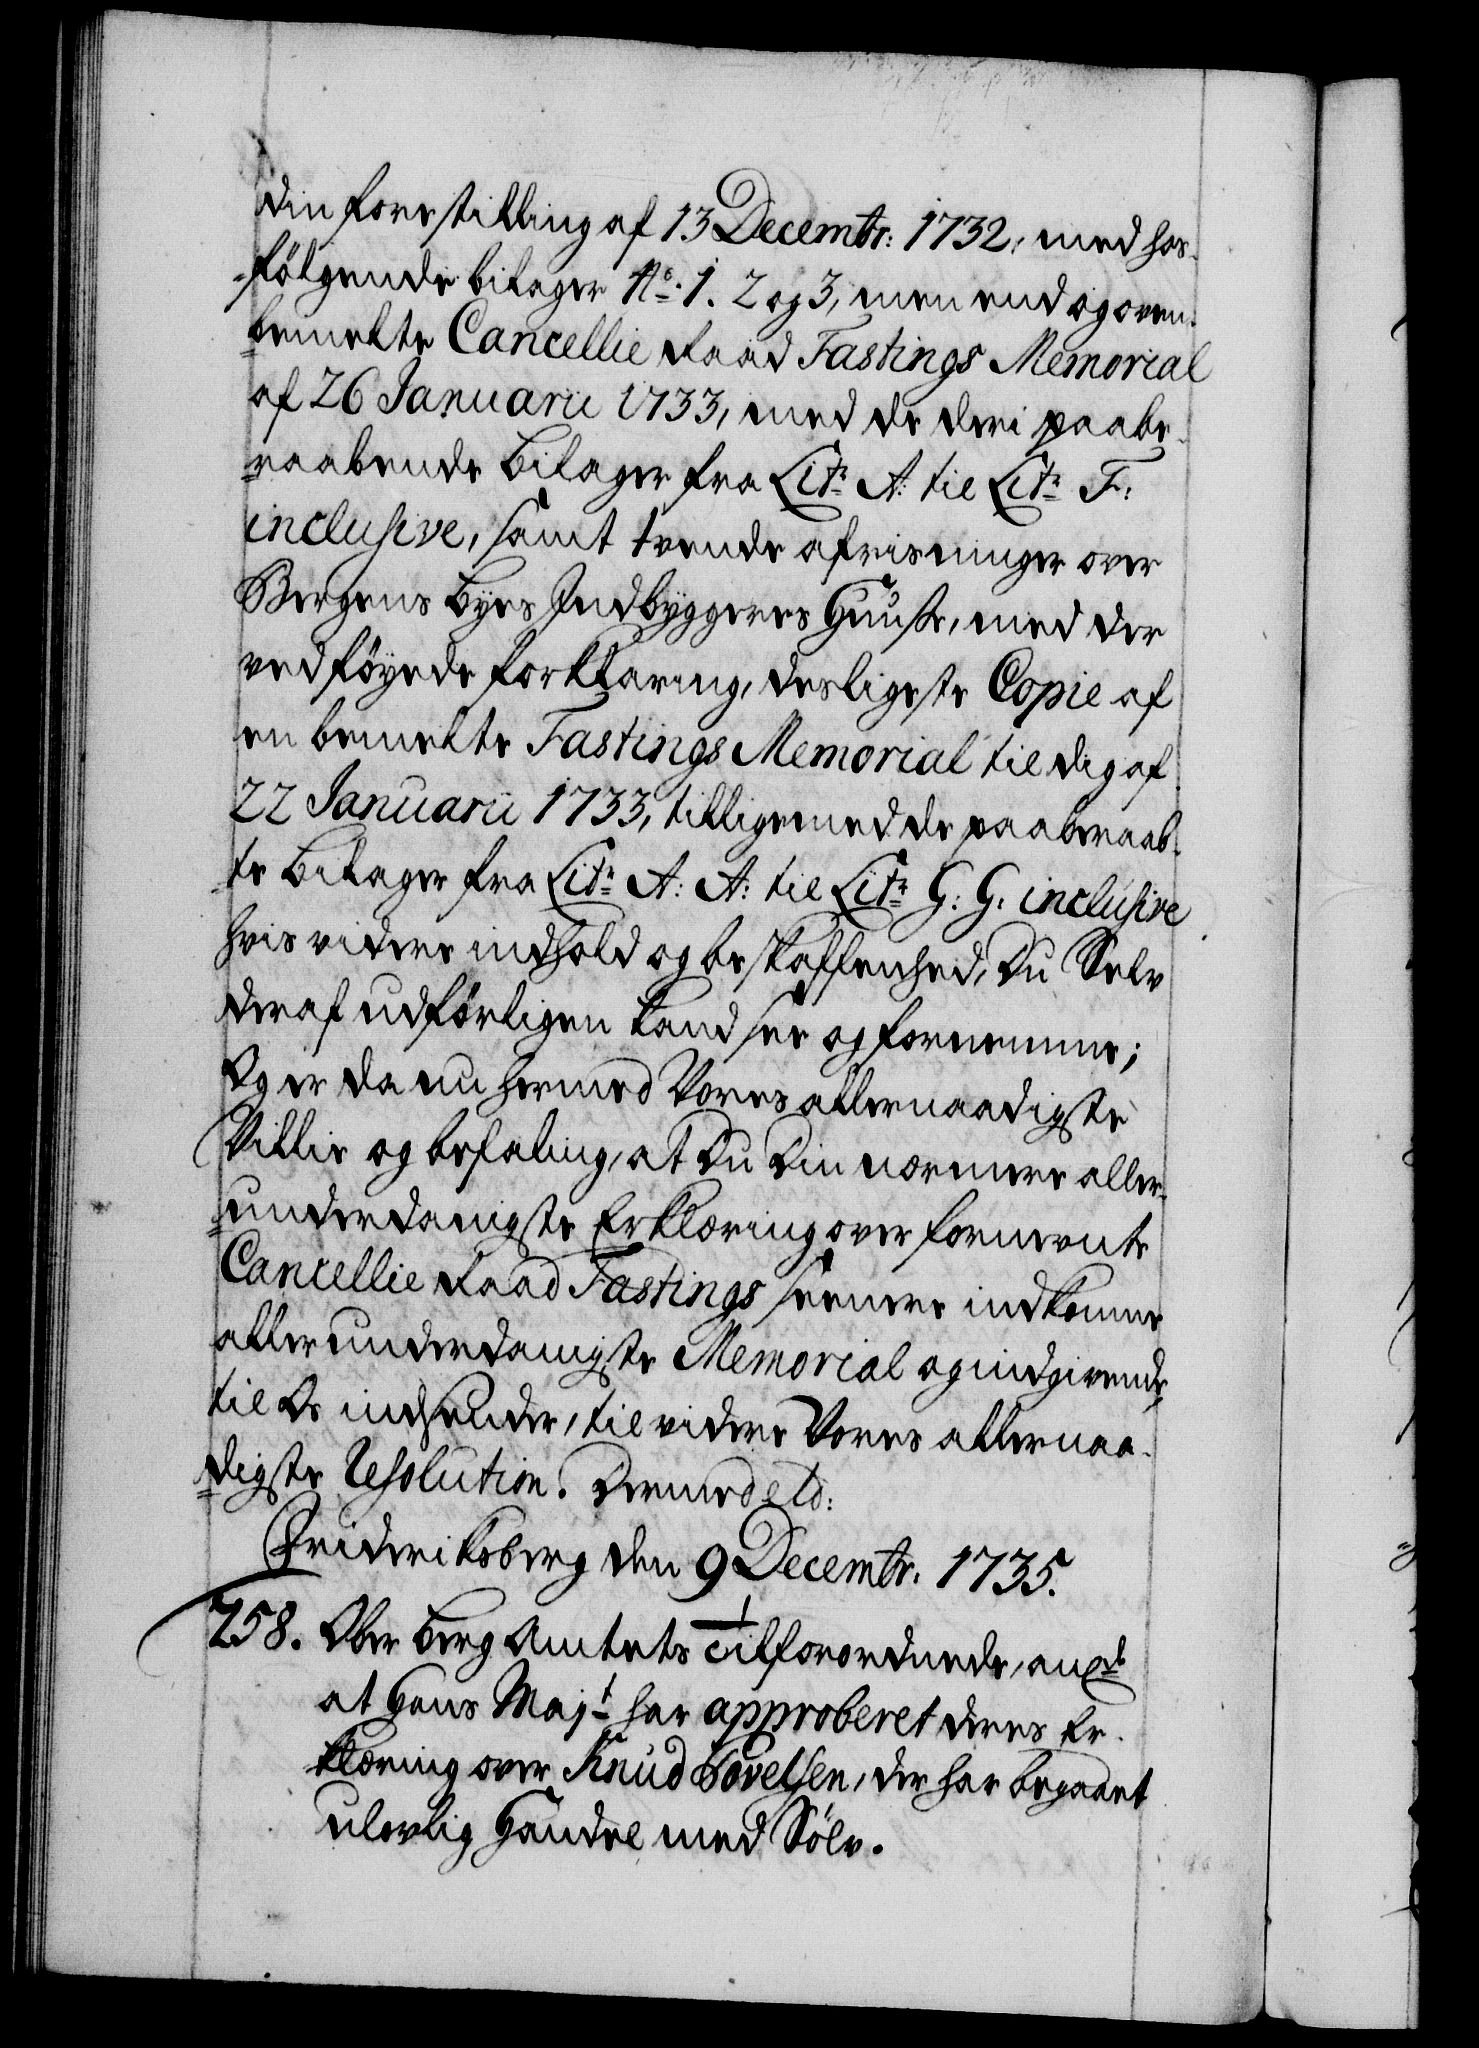 din forestilling af 13 Decembr: 1732, med hos-
-følgende bilager No. 1. 2 og 3, men end og oven-
=bemelte Cancellie Raad Fastings Memorial
af 26 Januarii 1733, med de deri paabe-
=raabende bilager fra Litr A: til Litr F:
inclusive, samt tvende afrisninger over
Bergens byes Indbyggeres Huuse, med der
ved føyede forklaring, desligeste Copie af
en bemelte Fastings Memorial til dig af
22 Januarii 1733, tilligemed de paaberaab-
-te bilager fra Litr A: A: til Litr G: G: inclusive
hvis videre indhold og beskaffenhed, Du Selv
deraf udførligen kand see og fornemme;
Og er da nu hermed Vores allernaadigste
Villie og befaling, at Du Din nærmere aller-
=underdanigste Erklæring over fornevnte
Cancellie Raad Fastings seenere indkomne
allerunderdanigste Memorial og indgivende,
til Os indsender, til videre Vores allernaa-
=digste Resolution. Dermed etc:
Friderichsberg den 9 Decembr. 1735.
258. Ober Berg Amtets Tilforordnede, anlb
at Hans Majt har approberet deres Er-
klæring over Knud Povelsen, der har begaaet
ulovlig Handel med Sølv.